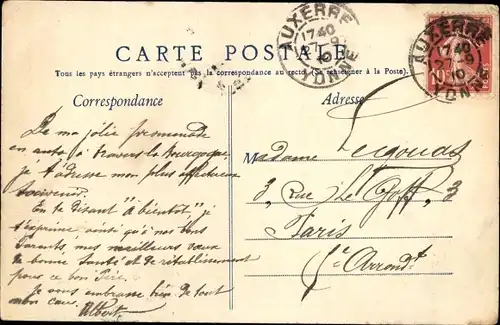 CARTE POSTALE
Tous les pays étrangers n'acceptent pas la correspondance au recto. (Se renseigner à la Poste).
Correspondance
Adresse
AUXERRE
1740
27 9
10
YONNE
AUXERRE
1740
27 9
10
YONNE
10
De ma jolie promenade
en auto à travers la Bourgogne,
je t'adresse mon plus affectueux
souvenir.
En te disant "à bientôt", je
t'exprime, ainsi qu'à nos bons
Parents, mes meilleurs vœux
de bonne santé et de rétablissement
pour ce bon Père.
Je vous embrasse bien de tout
mon cœur. Albert
Madame Legouas
3, Rue Le Goff, 3
Paris
5e Arrondt